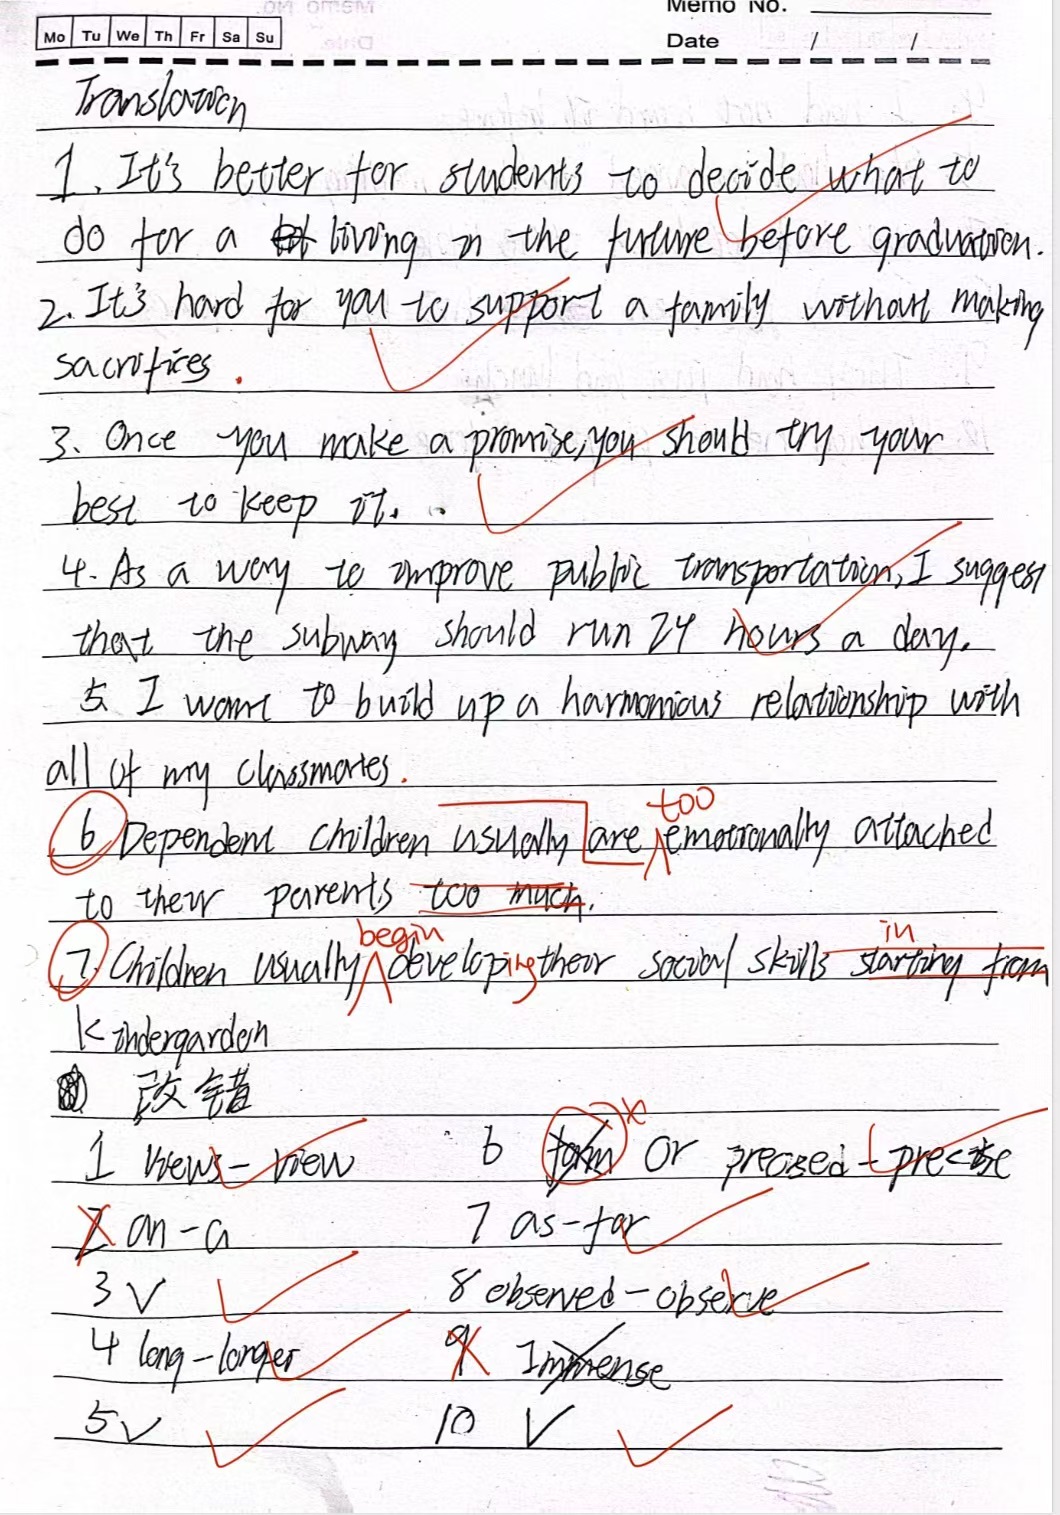 Memo No.
Mo Tu We Th Fr Sa Su
Date / /
Translation
1. It's better for students to decide what to
do for a living in the future before graduation.
2. It's hard for you to support a family without making
sacrifices.
3. Once you make a promise, you should try your
best to keep it.
4. As a way to improve public transportation, I suggest
that the subway should run 24 hours a day.
5. I want to build up a harmonious relationship with
all of my classmates.
too
6 Dependent children usually are emotionally attached
to their parents too much.
begin in
7. Children usually developing their social skills starting from
Kindergarden
改错
1 views – view 6 or precised – precise
2 an – a 7 as – far
3 V 8 observed – observe
4 long – longer 9 Immense
5 V 10 V